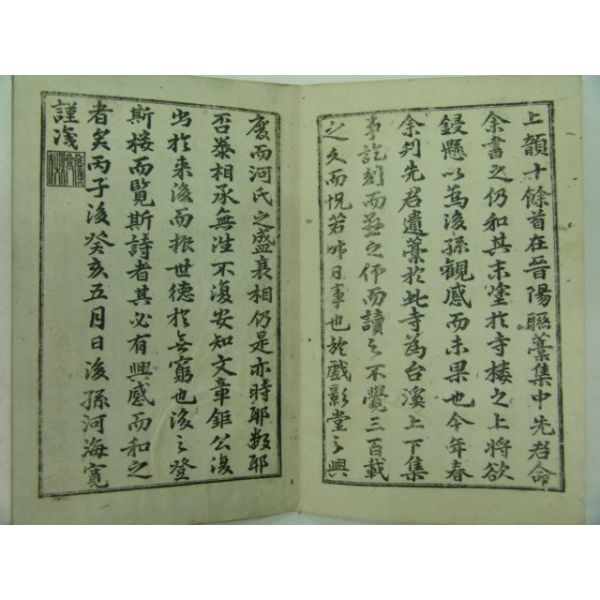 上韻十餘首在晋陽聯藁集中先君命
余書之仍和其未塗於寺樓之上將欲
鋟懸以爲後孫觀感而未果也今年春
余刋先君遺藁於此寺爲台溪上下集
事訖刻而懸之仰而讀之不覺三百載
之久而怳若昨日事也於戱影堂之興
廢而河氏之盛衰相仍是亦時耶數耶
否泰相承無往不復安知文章鉅公復
出於来後而振世德於無窮也後之登
斯樓而覽斯詩者其必有興感而和之
者矣丙子後癸亥五月日後孫河海寬
謹識